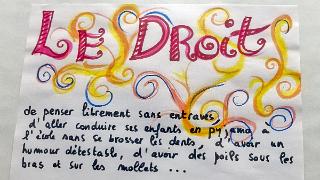 LE DROIT
de penser librement sans entraves,
d'aller conduire ses enfants en pyjama à
l'école sans se brosser les dents, d'avoir un
humour détestable, d'avoir des poils sous les
bras et sur les mollets ...